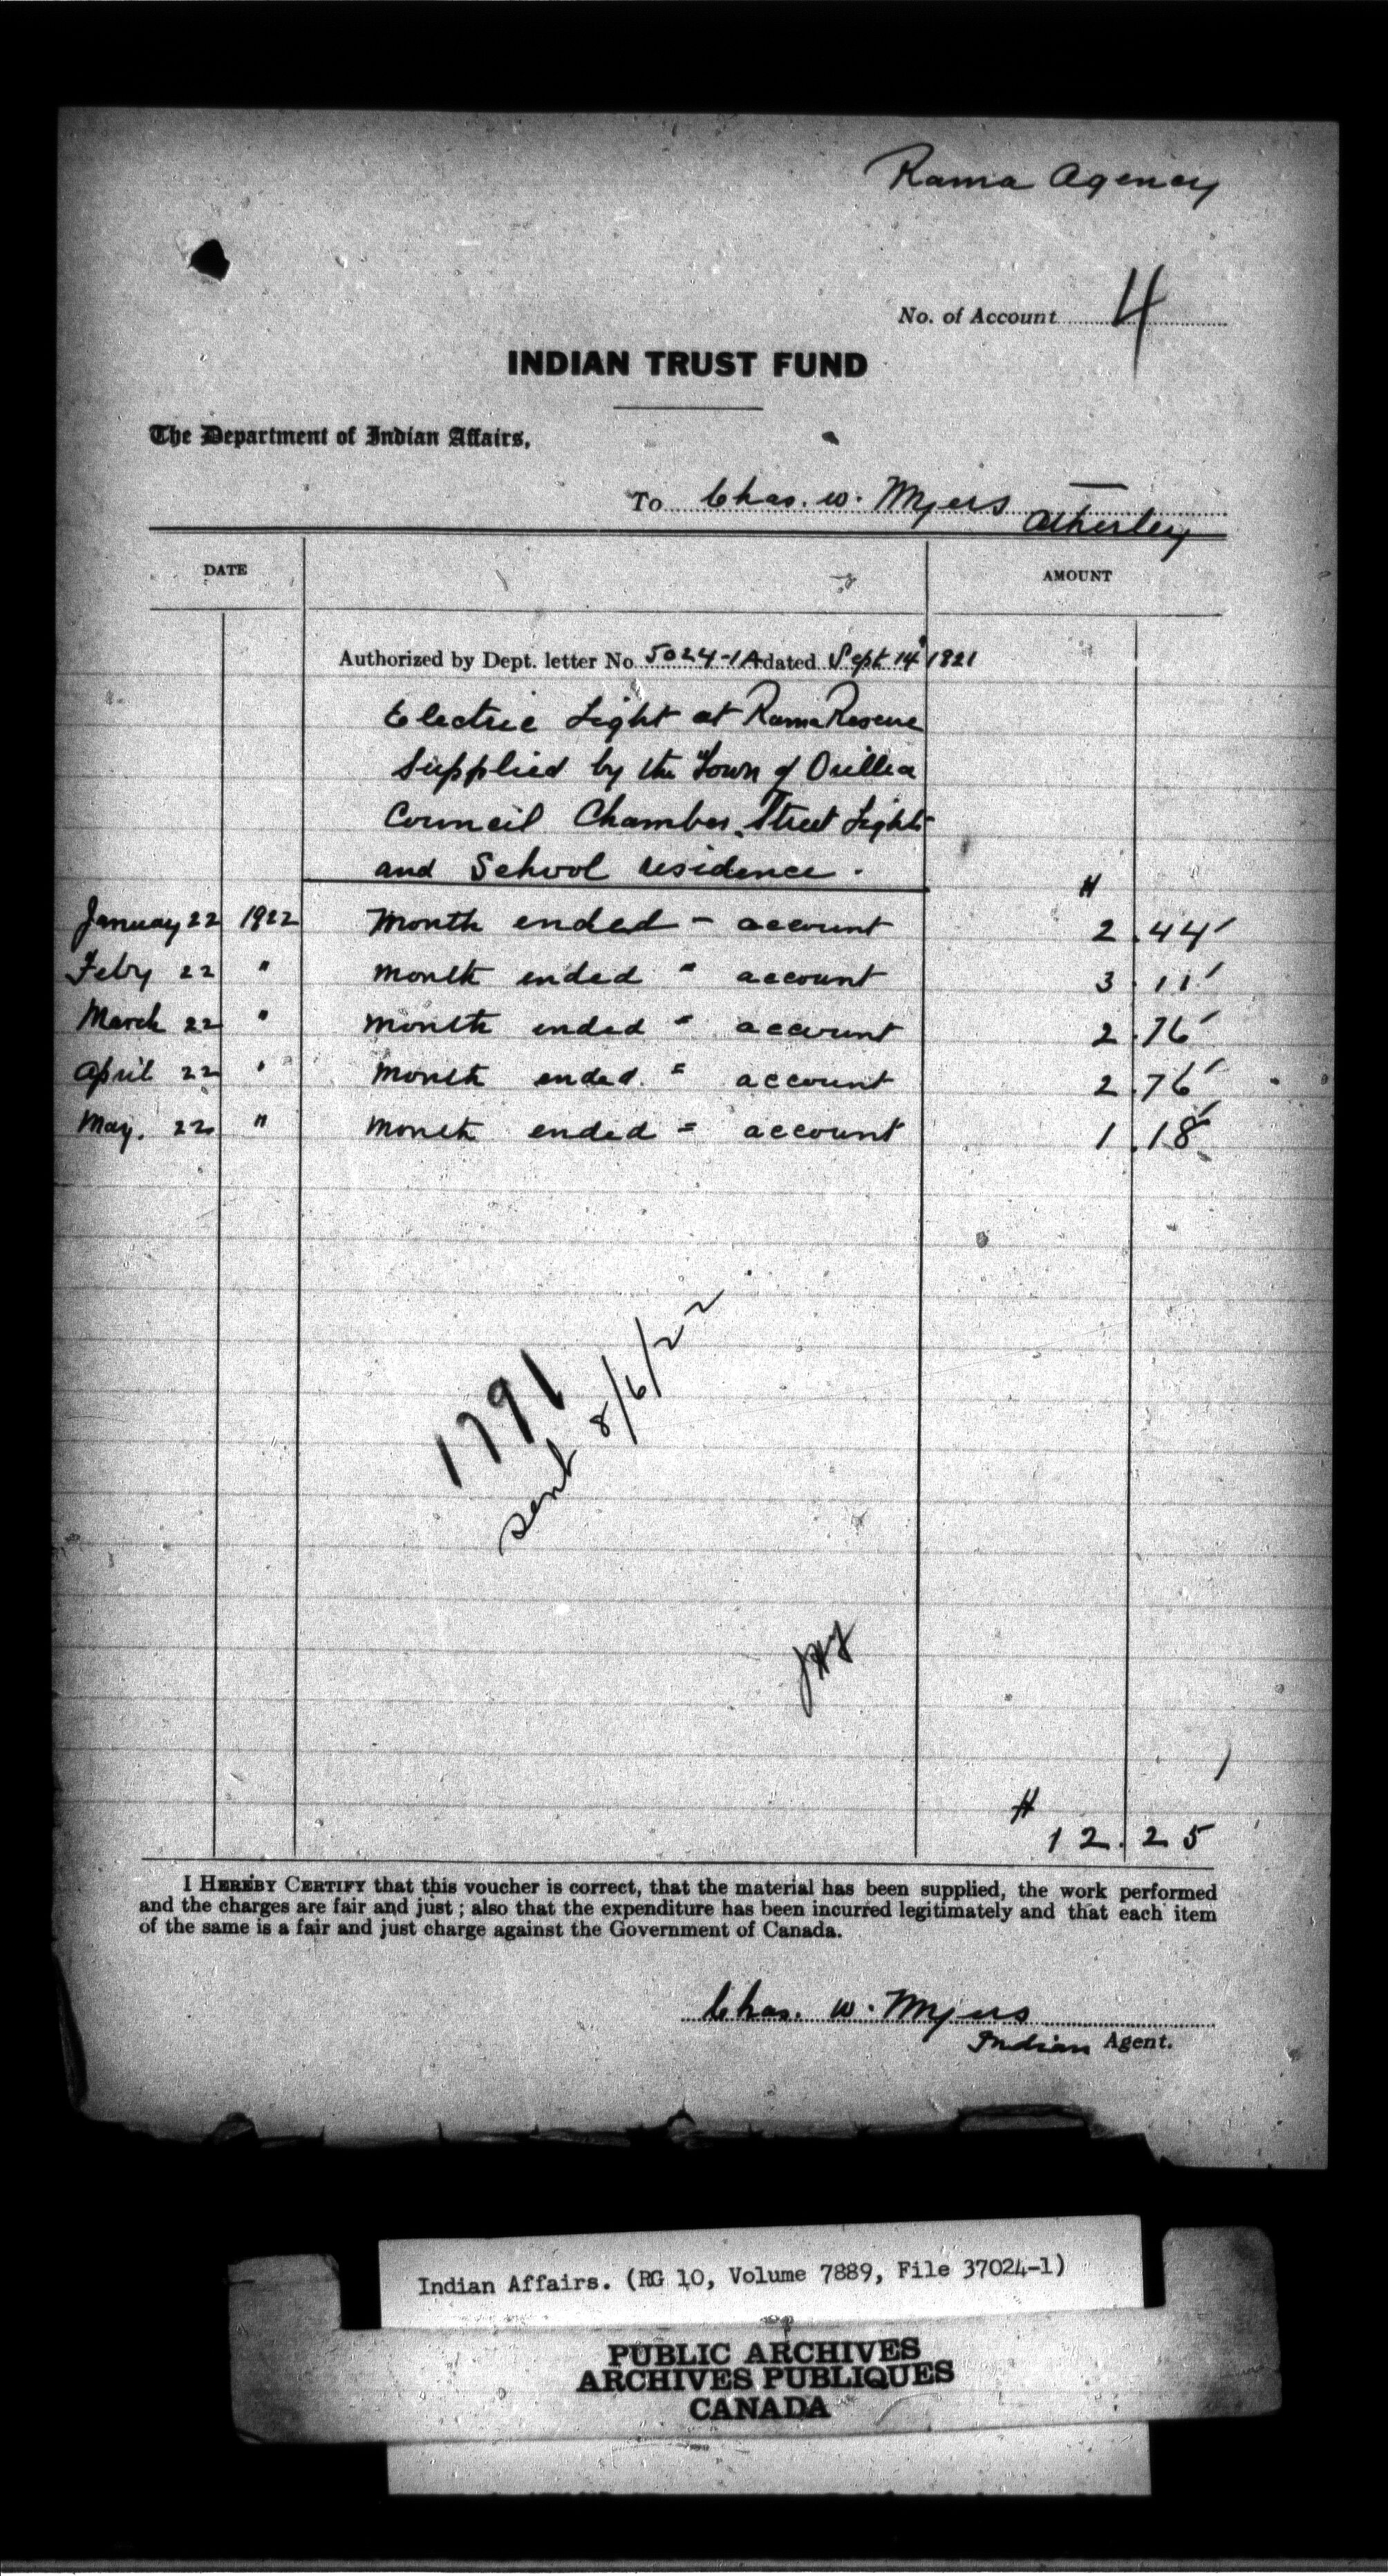 Rama Agency
No. of Account 4
INDIAN TRUST FUND
The Department of Indian Affairs,
To Chas. W. Myers
Atherley
DATE AMOUNT
Authorized by Dept. letter No. 5024-1A dated Sept. 14 1921
Electric Light at Rama Reserve
Supplied by the Town of Orillia
Council Chamber, Street Light
and School residence.
$
January 22 1922 Month ended - account 2.44
Feby 22 " Month ended " account 3.11
March 22 " Month ended " account 2.76
April 22 " Month ended " account 2.76
May. 22 " Month ended " account 1.18
1791
sent 8/6/22
$
12.25
I HEREBY CERTIFY that this voucher is correct, that the material has been supplied, the work performed
and the charges are fair and just; also that the expenditure has been incurred legitimately and that each item
of the same is a fair and just charge against the Government of Canada.
Chas. W. Myers
Indian Agent.
Indian Affairs. (RG 10, Volume 7889, File 37024-1)
PUBLIC ARCHIVES
ARCHIVES PUBLIQUES
CANADA